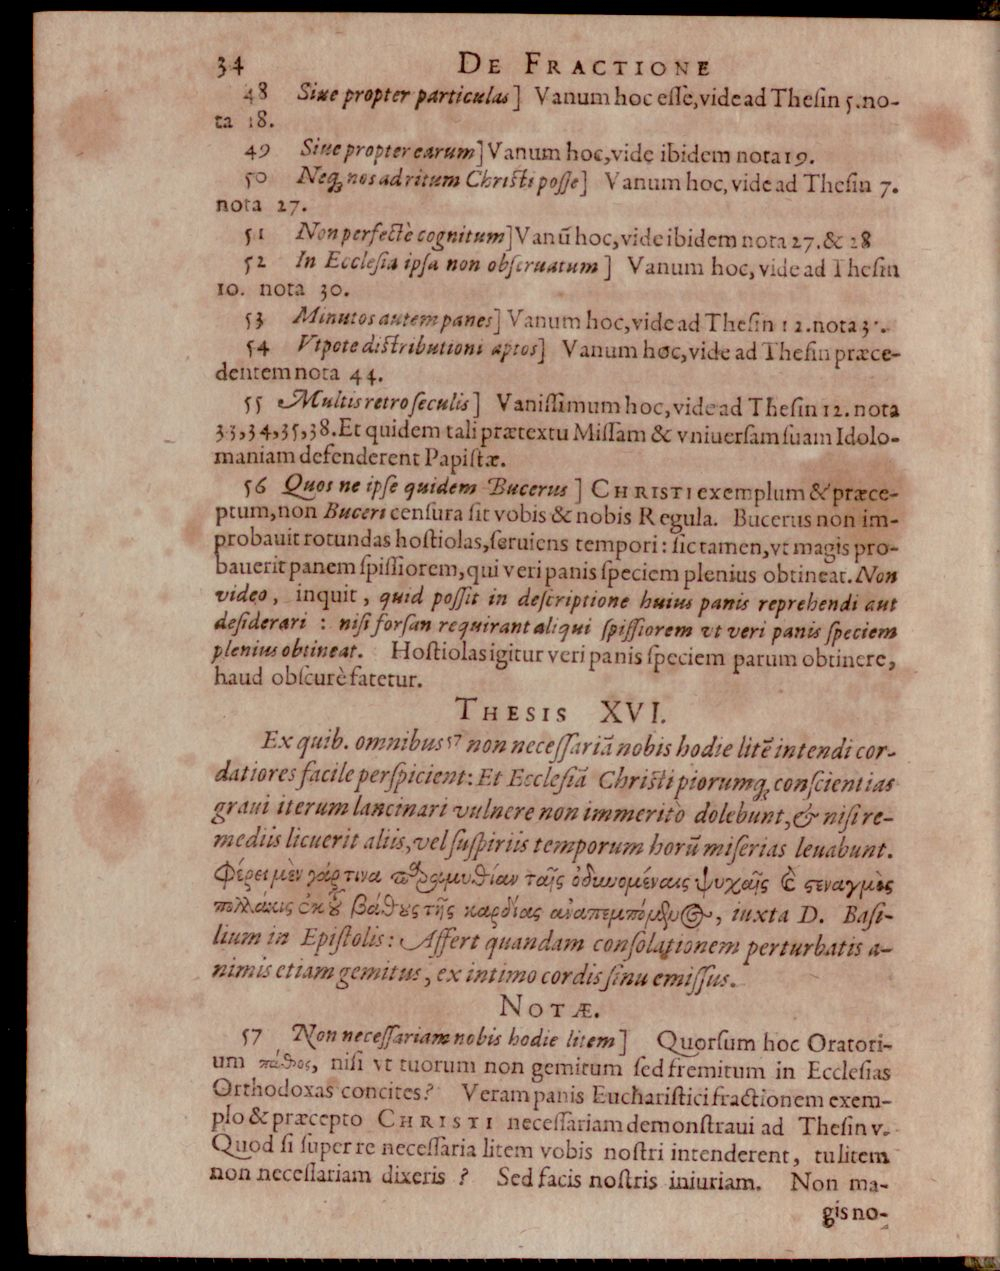 34 DE FRACTIONE
48 Siue propter particulas] Vanum hoc esse, vide ad Thesin 5. no-
ta 18.
49 Siue propter earum] Vanum hoc, vide ibidem nota 19.
50 Neq; nos ad ritum Christi posse] Vanum hoc, vide ad Thesin 7.
nota 27.
51 Non perfectè cognitum] Vanū hoc, vide ibidem nota 27. & 28
52 In Ecclesia ipsa non obseruatum] Vanum hoc, vide ad Thesin
10. nota 30.
53 Minutos autem panes] Vanum hoc, vide ad Thesin 12. nota
54 Vtpote distributioni aptos] Vanum hoc, vide ad Thesin præce-
dentem nota 44.
55 Multis retro seculis] Vanissimum hoc, vide ad Thesin 12. nota
33, 34, 35, 38. Et quidem tali prætextu Missam & vniuersam suam Idolo-
maniam defenderent Papistæ.
56 Quos ne ipse quidem Bucerus] CHRISTI exemplum & præce-
ptum, non Buceri censura sit vobis & nobis Regula. Bucerus non im-
probauit rotundas hostiolas, seruiens tempori: sic tamen, vt magis pro-
bauerit panem spissiorem, qui veri panis speciem plenius obtineat. Non
video, inquit, quid possit in descriptione huius panis reprehendi aut
desiderari: nisi forsan requirant aliqui spissiorem vt veri panis speciem
plenius obtineat. Hostiolas igitur veri panis speciem parum obtinere,
haud obscurè fatetur.
THESIS XVI.
Ex quib. omnibus 57 non necessariā nobis hodie litē intendi cor-
datiores facile perspicient: Et Ecclesiā Christi piorumq; conscientias
graui iterum lancinari vulnere non immeritò dolebunt, & nisi re-
mediis licuerit aliis, vel suspiriis temporum horū miserias leuabunt.
Φέρει μὲν γάρ τινα παραμυθίαν ταῖς ὀδυνομέναις ψυχαῖς ϗ̀ ςεναγμὸς
πολλάκις ἐκ τοῦ βάθους τῆς καρδίας ἀναπεμπόμενος, iuxta D. Basi-
lium in Epistolis: Affert quandam consolationem perturbatis a-
nimis etiam gemitus, ex intimo cordis sinu emissus.
NOTÆ.
57 Non necessariam nobis hodie litem] Quorsum hoc Oratori-
um πάθος, nisi vt tuorum non gemitum sed fremitum in Ecclesias
Orthodoxas concites? Veram panis Eucharistici fractionem exem-
plo & præcepto CHRISTI necessariam demonstraui ad Thesin v.
Quod si super re necessaria litem vobis nostri intenderent, tu litem
non necessariam dixeris? Sed facis nostris iniuriam. Non ma-
gis no-